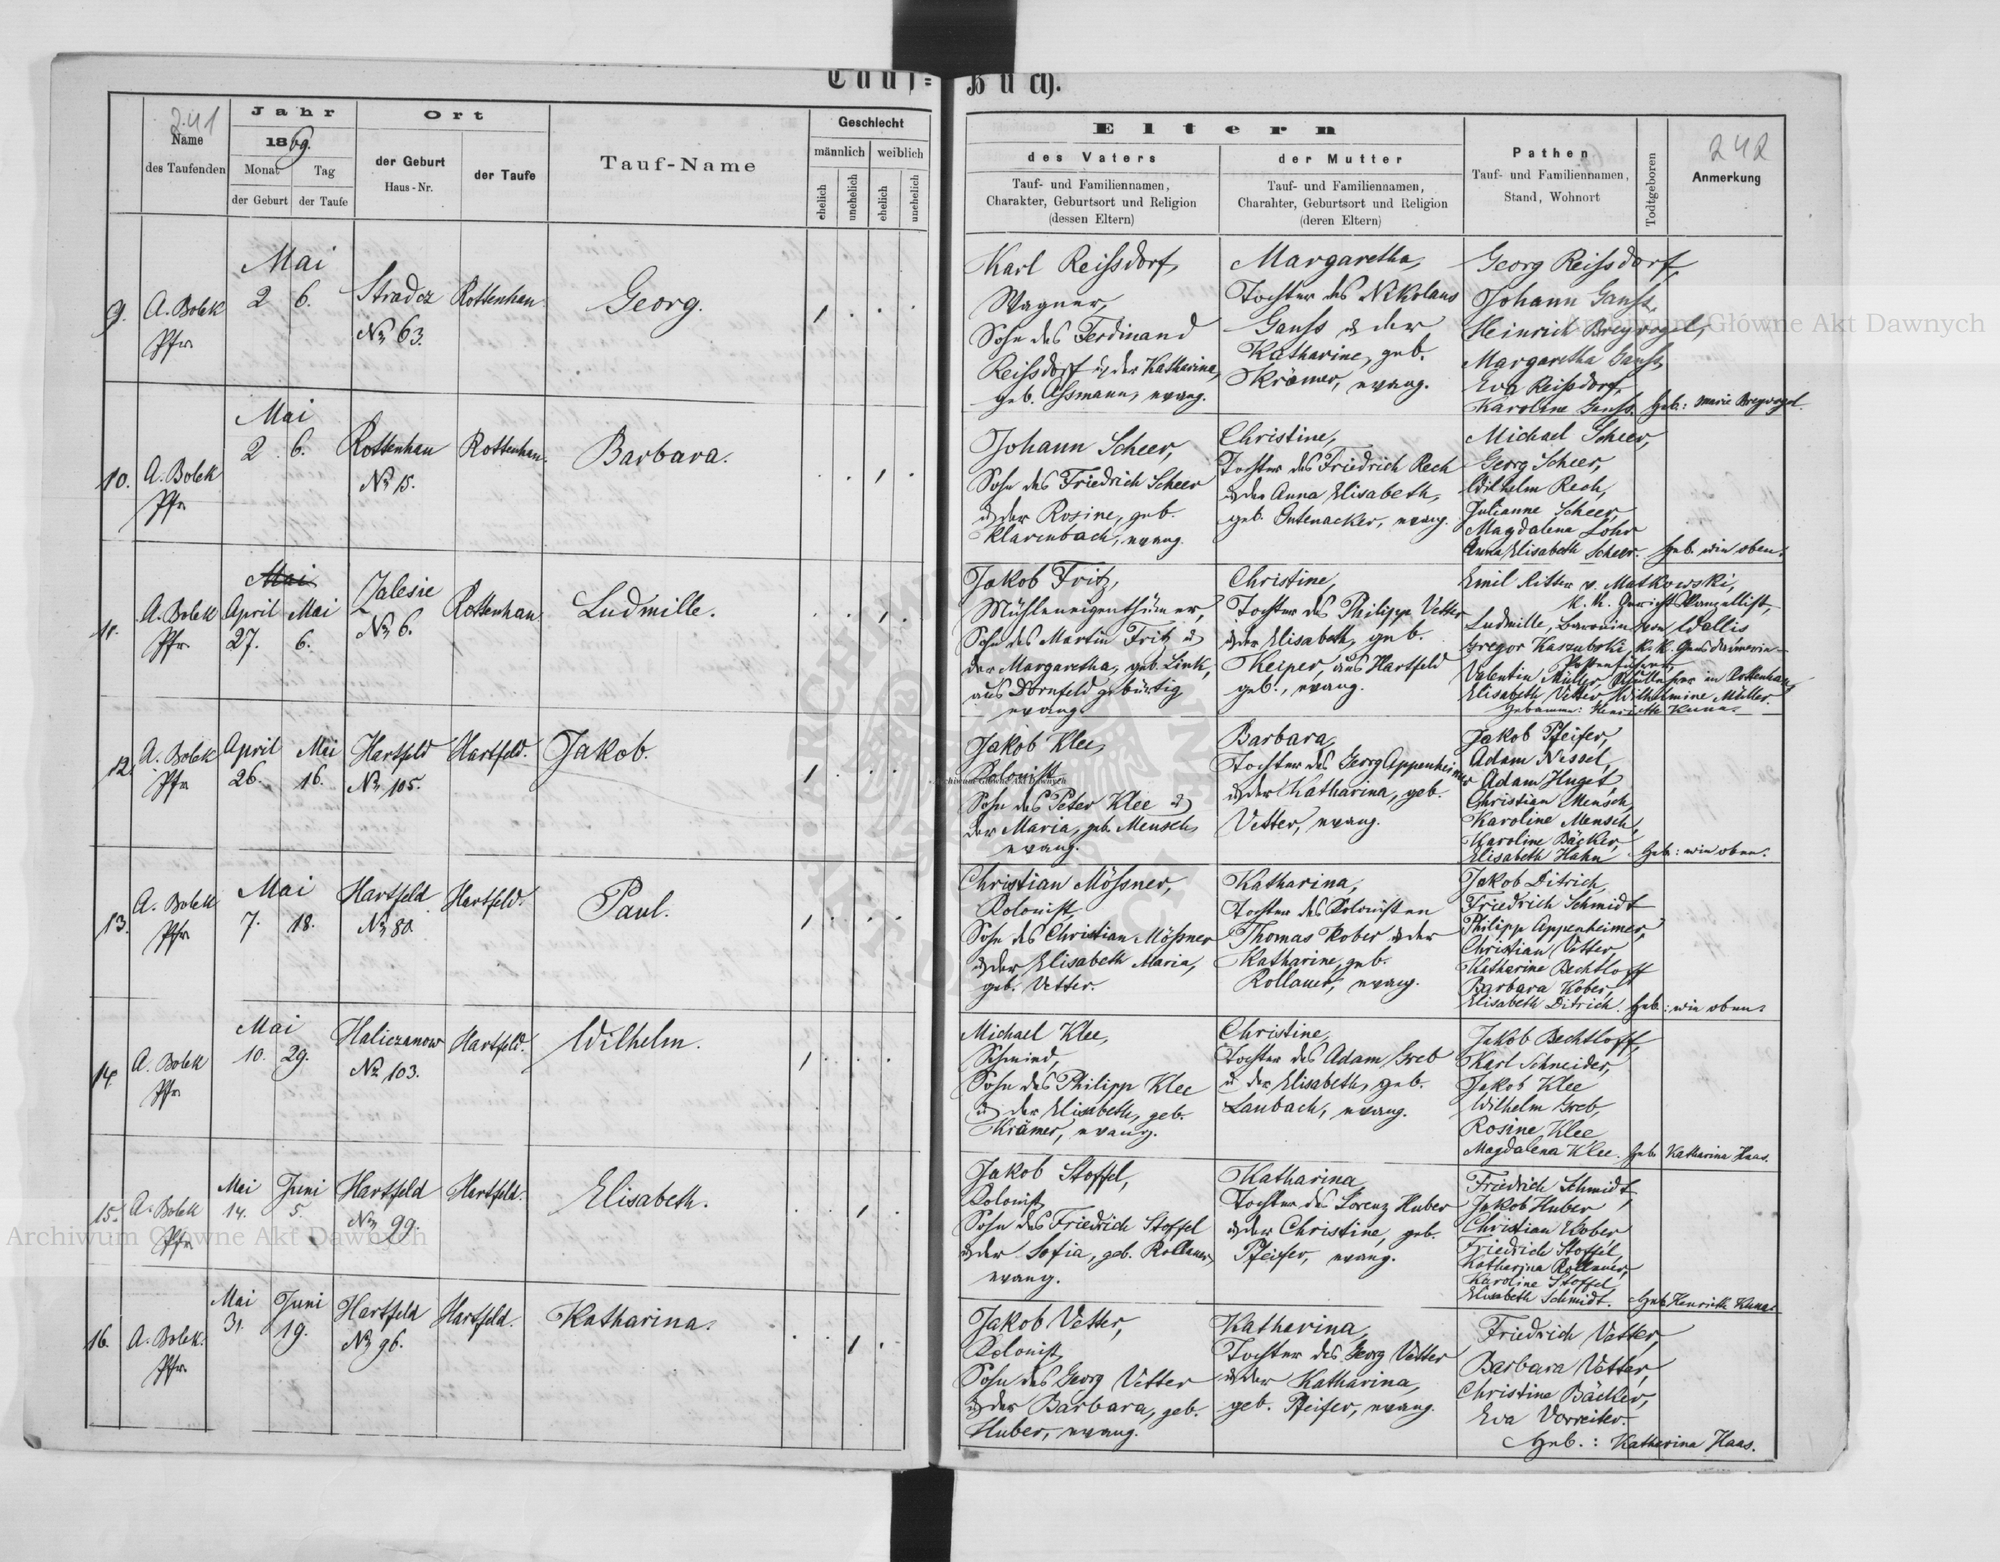 Tauf=Buch.
241
Name
des Taufenden
Jahr
1869.
Monat
Tag
der Geburt
der Taufe
Ort
der Geburt
Haus-Nr.
der Taufe
Tauf-Name
Geschlecht
männlich
weiblich
ehelich
unehelich
ehelich
unehelich
Eltern
des Vaters
Tauf- und Familiennamen,
Charakter, Geburtsort und Religion
(dessen Eltern)
der Mutter
Tauf- und Familiennamen,
Charahter, Geburtsort und Religion
(deren Eltern)
Pathen
Tauf- und Familiennamen,
Stand, Wohnort
Todtgeboren
242
Anmerkung
9.
A. Bolek
Pfr
Mai
2 6.
Stradcz
No 63.
Rottenhan
Georg.
1
Karl Reißdorf,
Wagner,
Sohn des Ferdinand
Reißdorf u. der Katharina,
geb. Aßmann, evang.
Margaretha,
Tochter des Nikolaus
Ganss u der
Katharine, geb.
Krämer, evang.
Georg Reißdorf,
Johann Ganß,
Heinrich Breyvogel,
Margaretha Ganß,
Eva Reißdorf,
Karoline Ganß. Heb.: Marie Breyvogel.
10.
A. Bolek
Pfr
Mai
2. 6.
Rottenhan
No 15.
Rottenhan.
Barbara.
1
Johann Scheer,
Sohn des Friedrich Scheer
u der Rosine, geb.
Klarenbach, evang.
Christine,
Tochter des Friedrich Rech
u der Anna Elisabeth,
geb. Gutenacker, evang.
Michael Scheer,
Georg Scheer,
Wilhelm Rech,
Julianne Scheer,
Magdalena Lohr
Anna Elisabeth Scheer. Heb. wie oben.
11.
A. Bolek
Pfr
Mai
April Mai
27. 6.
Zalesie
No 6.
Rottenhan
Ludmille.
1
Jakob Fritz,
Mühleneigenthümer,
Sohn des Martin Fritz u
der Margaretha, geb. Link,
aus Dornfeld gebürtig
evang.
Christine,
Tochter des Philipp Vetter
u der Elisabeth, geb.
Keiper, aus Hartfeld
geb., evang.
Emil Ritter v. Matkowski,
k. k. Gerichtskanzellist,
Ludmille, Baronin von Wallis
Gregor Kaszubski k. k. Gensdarmerie-
Postenführer,
Valentin Müller, Schullehrer in Rottenhan,
Elisabeth Vetter, Wilhelmine Müller.
Hebamme: Henriette Kuna.
12.
A. Bolek
Pfr
April Mai
26. 16.
Hartfeld
No 105.
Hartfeld.
Jakob.
1
Jakob Klee,
Kolonist,
Sohn des Peter Klee u
der Maria, geb. Mensch,
evang.
Barbara,
Tochter des Georg Appenheimer
u der Katharina, geb.
Vetter, evang.
Jakob Pfeifer,
Adam Nessel,
Adam Huget,
Christian Mensch,
Karoline Mensch,
Karoline Bäcker,
Elisabeth Hahn. Heb: wie oben.
13.
A. Bolek
Pfr
Mai
7. 18.
Hartfeld
No 80.
Hartfeld.
Paul.
1
Christian Mößner,
Kolonist,
Sohn des Christian Mößner
u der Elisabeth Maria,
geb. Vetter.
Katharina,
Tochter des Kolonisten
Thomas Kober u der
Katharine, geb.
Rollauer, evang.
Jakob Ditrich,
Friedrich Schmidt
Philipp Appenheimer,
Christian Vetter,
Katharine Bechtloff
Barbara Kober,
Elisabeth Ditrich. Heb: wie oben.
14.
A. Bolek
Pfr
Mai
10. 29.
Haliczanow
No 103.
Hartfeld.
Wilhelm.
1
Michael Klee,
Schmied,
Sohn des Philipp Klee
u der Elisabeth, geb.
Krämer, evang.
Christine,
Tochter des Adam Greb
u der Elisabeth, geb.
Laubach, evang.
Jakob Bechtloff,
Karl Schneider,
Jakob Klee
Wilhelm Greb,
Rosine Klee
Magdalena Klee. Heb Katharina Haas.
15.
A. Bolek
Pfr
Mai Juni
14. 5.
Hartfeld
No 99.
Hartfeld.
Elisabeth.
1
Jakob Stoffel,
Kolonist,
Sohn des Friedrich Stoffel
u der Sofia, geb. Rollauer,
evang.
Katharina,
Tochter des Lorenz Huber
u der Christine, geb.
Pfeifer, evang.
Friedrich Schmidt,
Jakob Huber
Christian Kober
Friedrich Stoffel,
Katharina Rollauer,
Karoline Stoffel,
Elisabeth Schmidt. Heb Henriette Kuna
16.
A. Bolek.
Pfr
Mai Juni
31. 19.
Hartfeld
No 96.
Hartfeld.
Katharina.
1
Jakob Vetter,
Kolonist,
Sohn des Georg Vetter
u der Barbara, geb.
Huber, evang.
Katharina,
Tochter des Georg Vetter
u der Katharina,
geb. Pfeifer, evang.
Friedrich Vetter,
Barbara Vetter,
Christine Bäcker,
Eva Vorreiter.
Heb.: Katharina Haas.
Archiwum Główne Akt Dawnych
Archiwum Główne Akt Dawnych
Archiwum Główne Akt Dawnych